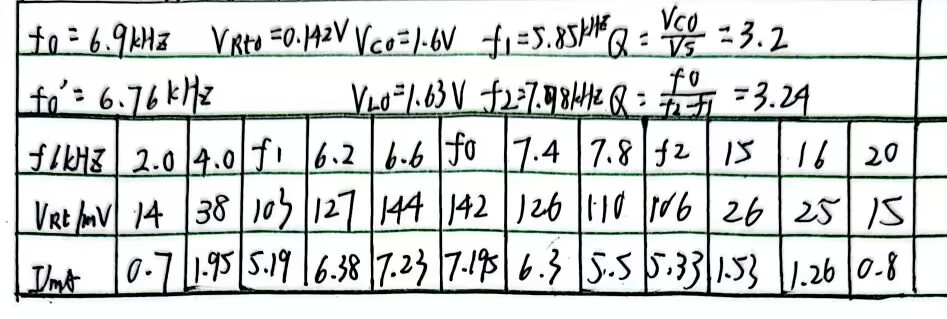 f0 = 6.9kHz VRt0=0.142V Vco=1.6V f1=5.85kHz Q = Vco/Vs = 3.2
f0' = 6.76kHz VL0=1.63V f2=7.98kHz Q = f0/f2-f1 = 3.24
f/kHz 2.0 4.0 f1 6.2 6.6 f0 7.4 7.8 f2 15 16 20
VRt/mV 14 38 103 127 144 142 126 110 106 26 25 15
I/mA 0.7 1.95 5.19 6.38 7.23 7.195 6.3 5.5 5.33 1.53 1.26 0.8